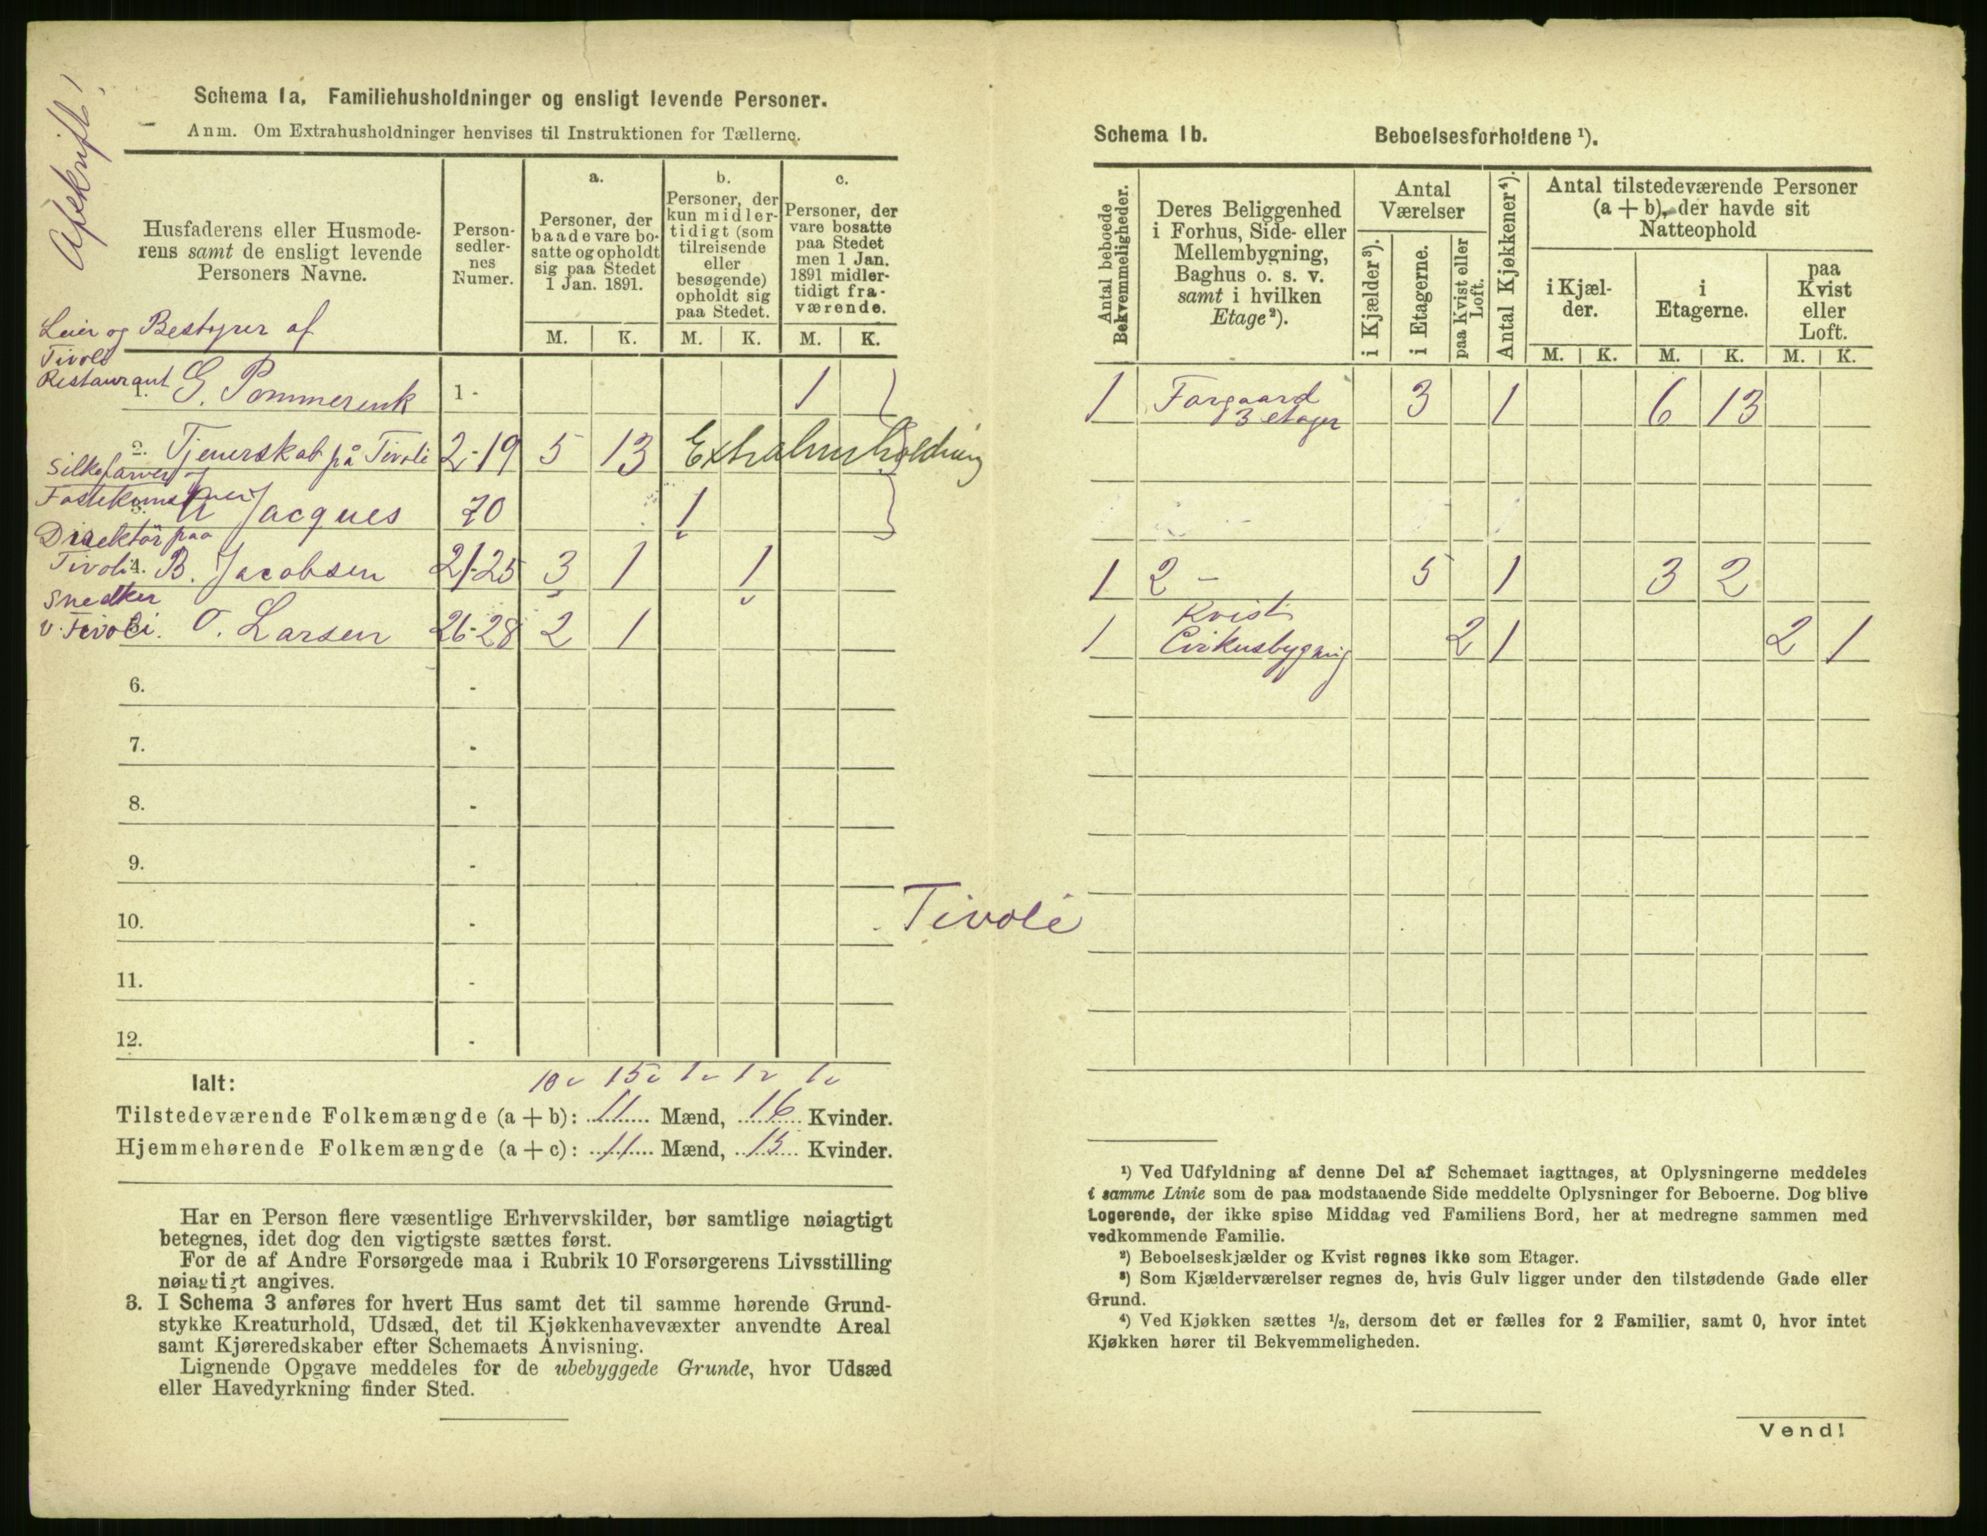 Afskrift!
Schema 1a. Familiehusholdninger og ensligt levende Personer.
Anm. Om Extrahusholdninger henvises til Instruktionen for Tællerne.
Husfaderens eller Husmode-
rens samt de ensligt levende
Personers Navne.
Person-
sedler-
nes
Numer.
a.
Personer, der
baade vare bo-
satte og opholdt
sig paa Stedet
1 Jan. 1891.
b.
Personer, der
kun midler-
tidigt (som
tilreisende
eller
besøgende)
opholdt sig
paa Stedet.
c.
Personer, der
vare bosatte
paa Stedet
men 1 Jan.
1891 midler-
tidigt fra-
værende.
M. K. M. K. M. K.
Leier og Bestyrer af
Tivoli
Restaurant
1. G. Pommerenk 1 - 1
2. Tjenerskab på Tivoli 2-19 5 13 Extrahusholdning
Silkefarver og
3. Jacques 20 1
Direktör paa
Tivoli 4. B. Jacobsen 21-25 3 1 1
Snedker
v. Tivoli. O. Larsen 26-28 2 1
6. -
7. -
8. -
9. -
10. -
11. -
12. -
Ialt: 10 15 1 1 1
Tilstedeværende Folkemængde (a + b): 11 Mænd, 16 Kvinder.
Hjemmehørende Folkemængde (a + c): 11 Mænd, 15 Kvinder.
Har en Person flere væsentlige Erhvervskilder, bør samtlige nøiagtigt
betegnes, idet dog den vigtigste sættes først.
For de af Andre Forsørgede maa i Rubrik 10 Forsørgerens Livsstilling
nøiagtigt angives.
3. I Schema 3 anføres for hvert Hus samt det til samme hørende Grund-
stykke Kreaturhold, Udsæd, det til Kjøkkenhavevæxter anvendte Areal
samt Kjøreredskaber efter Schemaets Anvisning.
Lignende Opgave meddeles for de ubebyggede Grunde, hvor Udsæd
eller Havedyrkning finder Sted.
Tivoli
Schema 1b. Beboelsesforholdene ¹).
Antal beboede
Bekvemmeligheder.
Deres Beliggenhed
i Forhus, Side- eller
Mellembygning,
Baghus o. s. v.
samt i hvilken
Etage²).
Antal
Værelser
i Kjælder³).
i Etagerne.
paa Kvist eller
Loft.
Antal Kjøkkener⁴).
Antal tilstedeværende Personer
(a + b), der havde sit
Natteophold
i Kjæl-
der.
i
Etagerne.
paa
Kvist
eller
Loft.
M. K. M. K. M. K.
1 Forgaard
3 etager 3 1 6 13
1 2 - 5 1 3 2
Kvist
1 Cirkusbygning 2 1 2 1
¹) Ved Udfyldning af denne Del af Schemaet iagttages, at Oplysningerne meddeles
i samme Linie som de paa modstaaende Side meddelte Oplysninger for Beboerne. Dog blive
Logerende, der ikke spise Middag ved Familiens Bord, her at medregne sammen med
vedkommende Familie.
²) Beboelseskjælder og Kvist regnes ikke som Etager.
³) Som Kjælderværelser regnes de, hvis Gulv ligger under den tilstødende Gade eller
Grund.
⁴) Ved Kjøkken sættes ½, dersom det er fælles for 2 Familier, samt 0, hvor intet
Kjøkken hører til Bekvemmeligheden.
Vend!